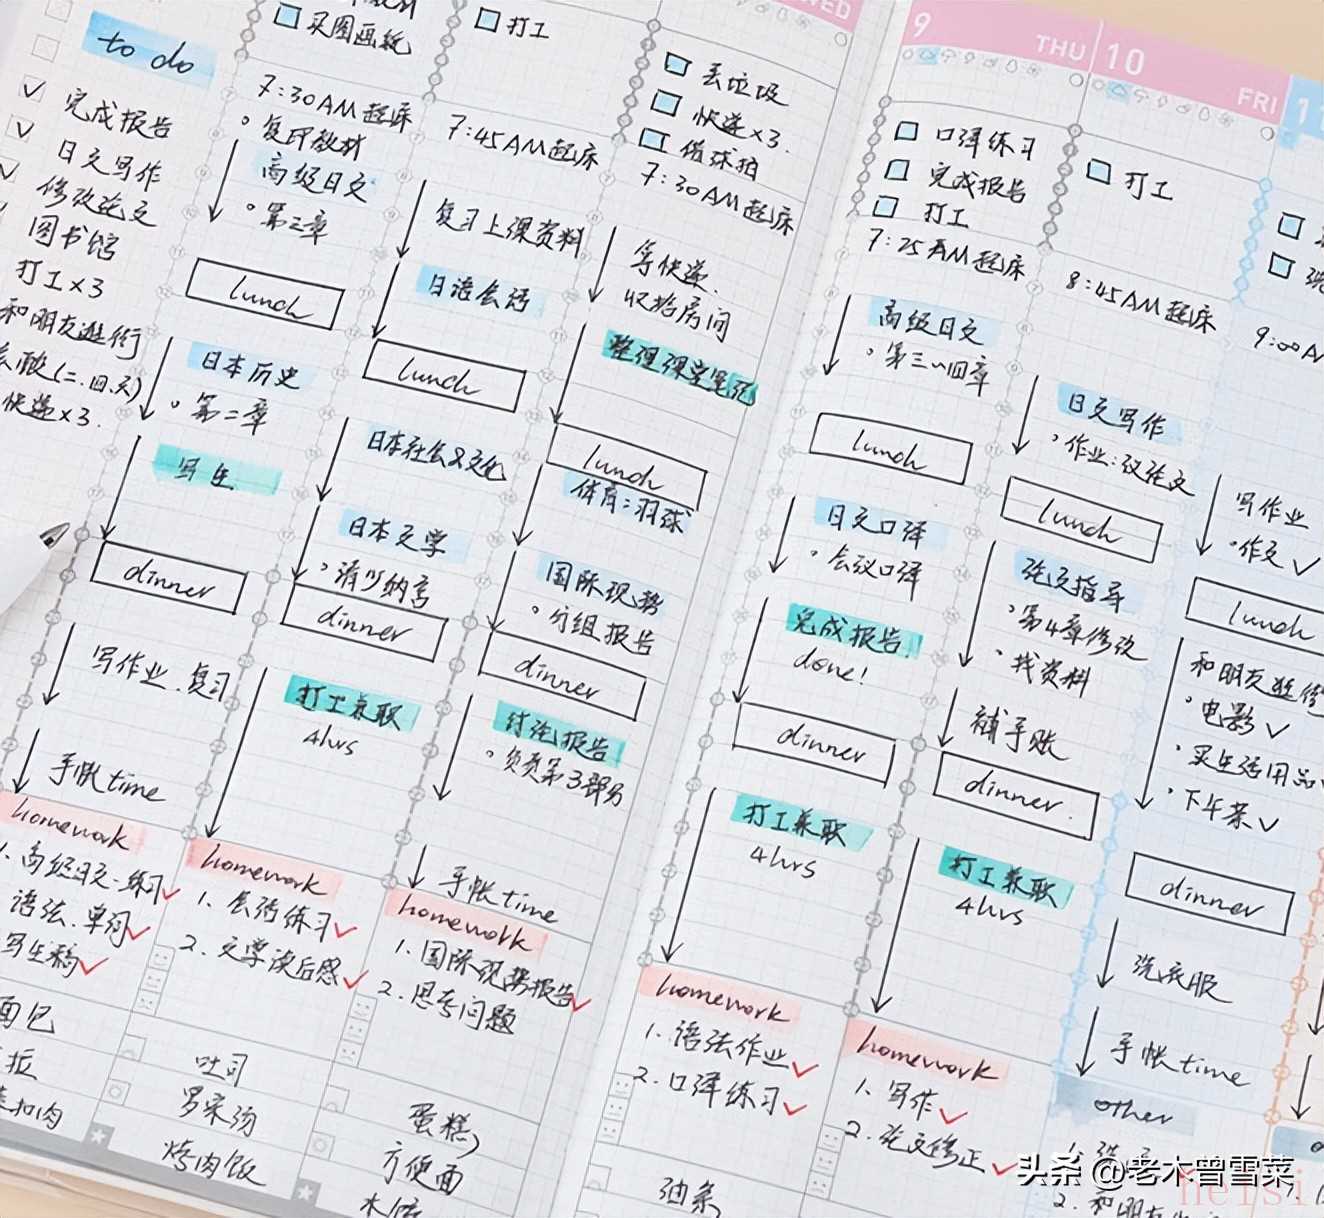 to do
完成报告
日文写作
修改论文
图书馆
打工×3
和朋友逛街
(二.四.六)
快递×3.
买图画纸
7:30AM起床
。复印教材
高级日文
。第三章
lunch
日本历史
。第二章
写生
dinner
写作业.复习
手帐time
homework
1.高级日文-练习
语法.单词
写生稿
面包
打工
7:45AM起床
复习上课资料
日语会话
lunch
日本社会文化
日本文学
清少纳言
dinner
打工兼职
4hrs
homework
1.会话练习
2.文学读后感
吐司
罗宋汤
烤肉饭
WED
丢垃圾
快递×3.
借球拍
7:30AM起床
等快递.
收拾房间
整理课堂笔记
lunch
体育:羽球
国际现势
。分组报告
dinner
讨论报告
。负责第3部分
手帐time
homework
1.国际现势报告
2.思考问题
蛋糕
方便面
9
THU
口译练习
完成报告
打工
7:25AM起床
高级日文
。第三~四章
lunch
日文口译
。会议口译
完成报告!
done!
dinner
打工兼职
4hrs
homework
1.语法作业
2.口译练习
油条
10
FRI
打工
8:45AM起床
日文写作
。作业:议论文
lunch
论文指导
。第4章修改
。找资料
补手账
dinner
打工兼职
4hrs
homework
1.写作
2.论文修正
11
9:00AM
写作业
。作文✓
lunch
和朋友逛街
。电影✓
。买生活用品
。下午茶✓
dinner
洗衣服
手帐time
other
头条 @老木曾雪菜
heisi